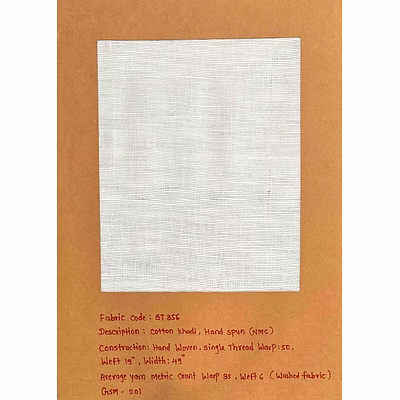 Fabric code : ST 356
Description : Cotton khadi, Hand spun (NMC)
Construction: Hand Woven, single Thread Warp: 50,
Weft 19", Width: 49"
Average yarn metric Count Warp 35, Weft 6 (Washed fabric)
GSM - 201